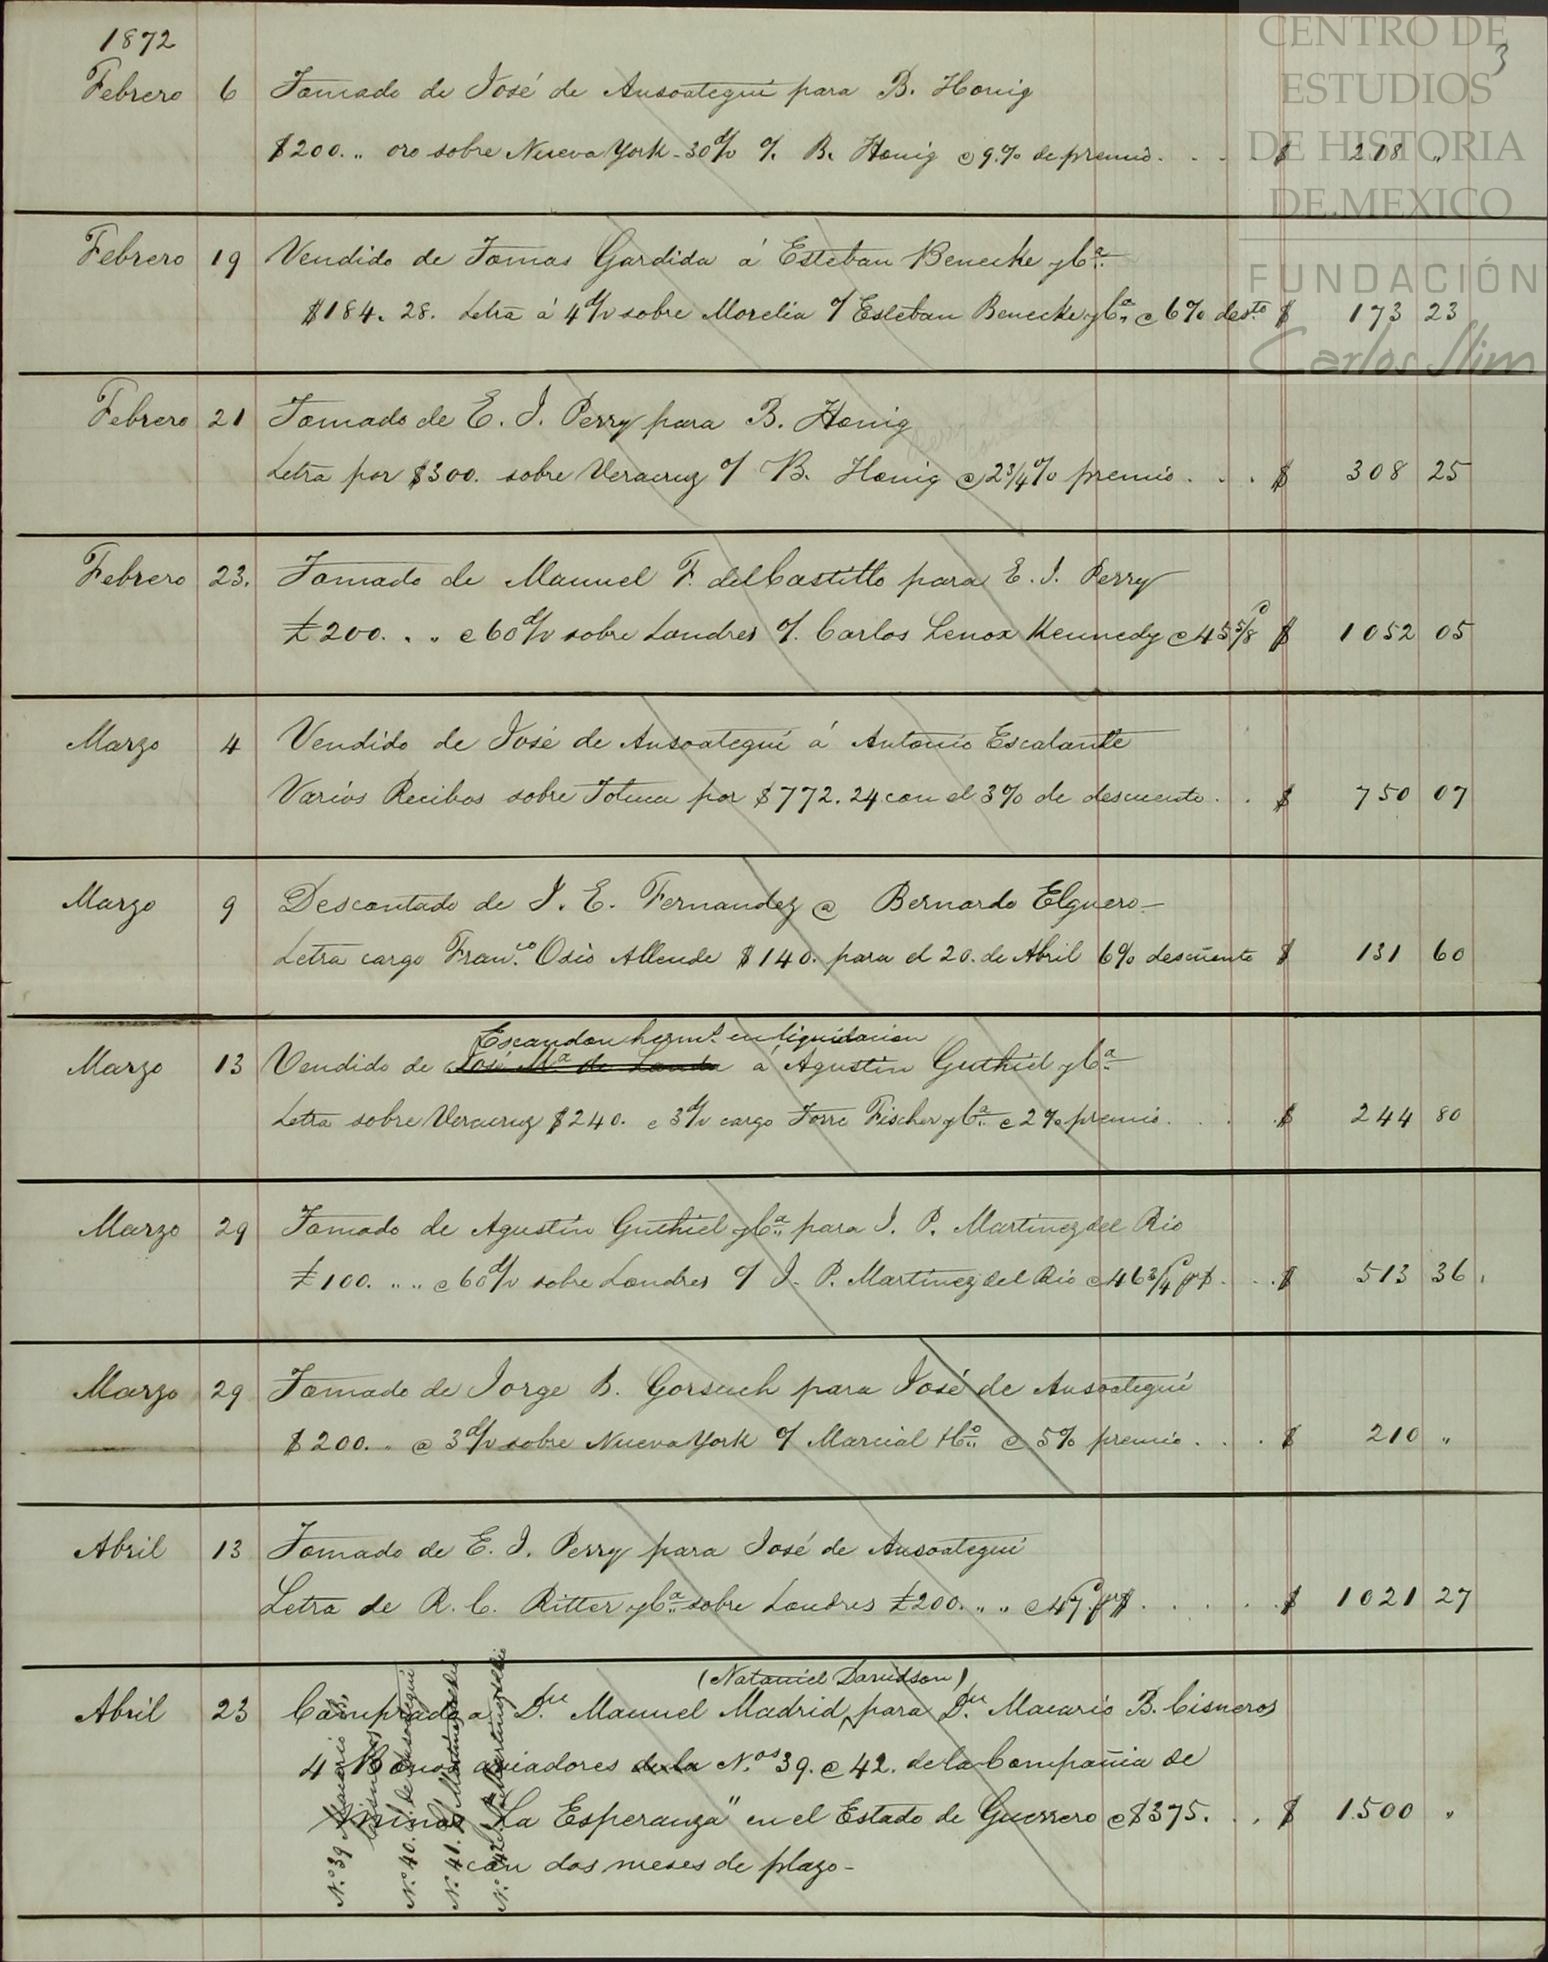 1872
3
Febrero 6 Tomado de José de Ansoategui para B. Honig
$200. „ oro sobre Nueva York - 30 d/v c/. B. Honig @ 9.% de premio. . . . $ 218 „
Febrero 19 Vendido de Tomas Gardida á Esteban Benecke y Cª
$184. 28. Letra á 4 d/v sobre Morelia c/ Esteban Benecke y Cª @ 6% desto $ 173 23
Febrero 21 Tomado de E. J. Perry para B. Honig
Letra por $300. sobre Veracruz c/ B. Honig @ 2 3/4 % premio . . . $ 308 25
Febrero 23. Tomado de Manuel F. del Castillo para E. J. Perry
£200. „ „ @ 60 d/v sobre Londres c/. Carlos Lenox Kennedy @ 45 5/8 $ 1052 05
Marzo 4 Vendido de José de Ansoategui á Antonio Escalante
Varios Recibos sobre Toluca por $772. 24 con el 3% de descuento . . $ 750 07
Marzo 9 Descontado de J. E. Fernandez @ Bernardo Elguero
Letra cargo Franco Osio Allende $140. para el 20. de Abril 6% descuento $ 131 60
Escandon hermˢ en liquidacion
Marzo 13 Vendido de José Mª de Landa á Agustin Guthiel y Cª
Letra sobre Veracruz $240. @ 3 d/v cargo Torre Fischer y Cª @ 2% premio. . . . $ 244 80
Marzo 29 Tomado de Agustin Guthiel y Cª para J. P. Martinez del Rio
£100. „ „ @ 60 d/v sobre Londres c/ J. P. Martinez del Rio @ 46 3/4 p $ . . . $ 513 36
Marzo 29 Tomado de Jorge B. Gorsuch para José de Ansoategui
$200. „ @ 3 d/v sobre Nueva York c/ Marcial Hº @ 5% premio . . . $ 210 „
Abril 13 Tomado de E. J. Perry para José de Ansoategui
Letra de R. C. Ritter y Cª sobre Londres £200. „ „ @ 47 p $ . . . . . $ 1021 27
(Nataniel Davidson)
Abril 23 Comprado a Dn Manuel Madrid, para Dn Macario B. Cisneros
4 Bonos aviadores de la N.os 39. @ 42. de la Compañia de
Minas "La Esperanza" en el Estado de Guerrero @ $375. . . $ 1500 „
con dos meses de plazo -
N.º 39 Macario B. Cisneros
N.º 40. de Ansoategui
N.º 41. Martinez del Rio
N.º 42. Martinez del Rio
CENTRO DE
ESTUDIOS
DE HISTORIA
DE MEXICO
FUNDACIÓN
Carlos Slim